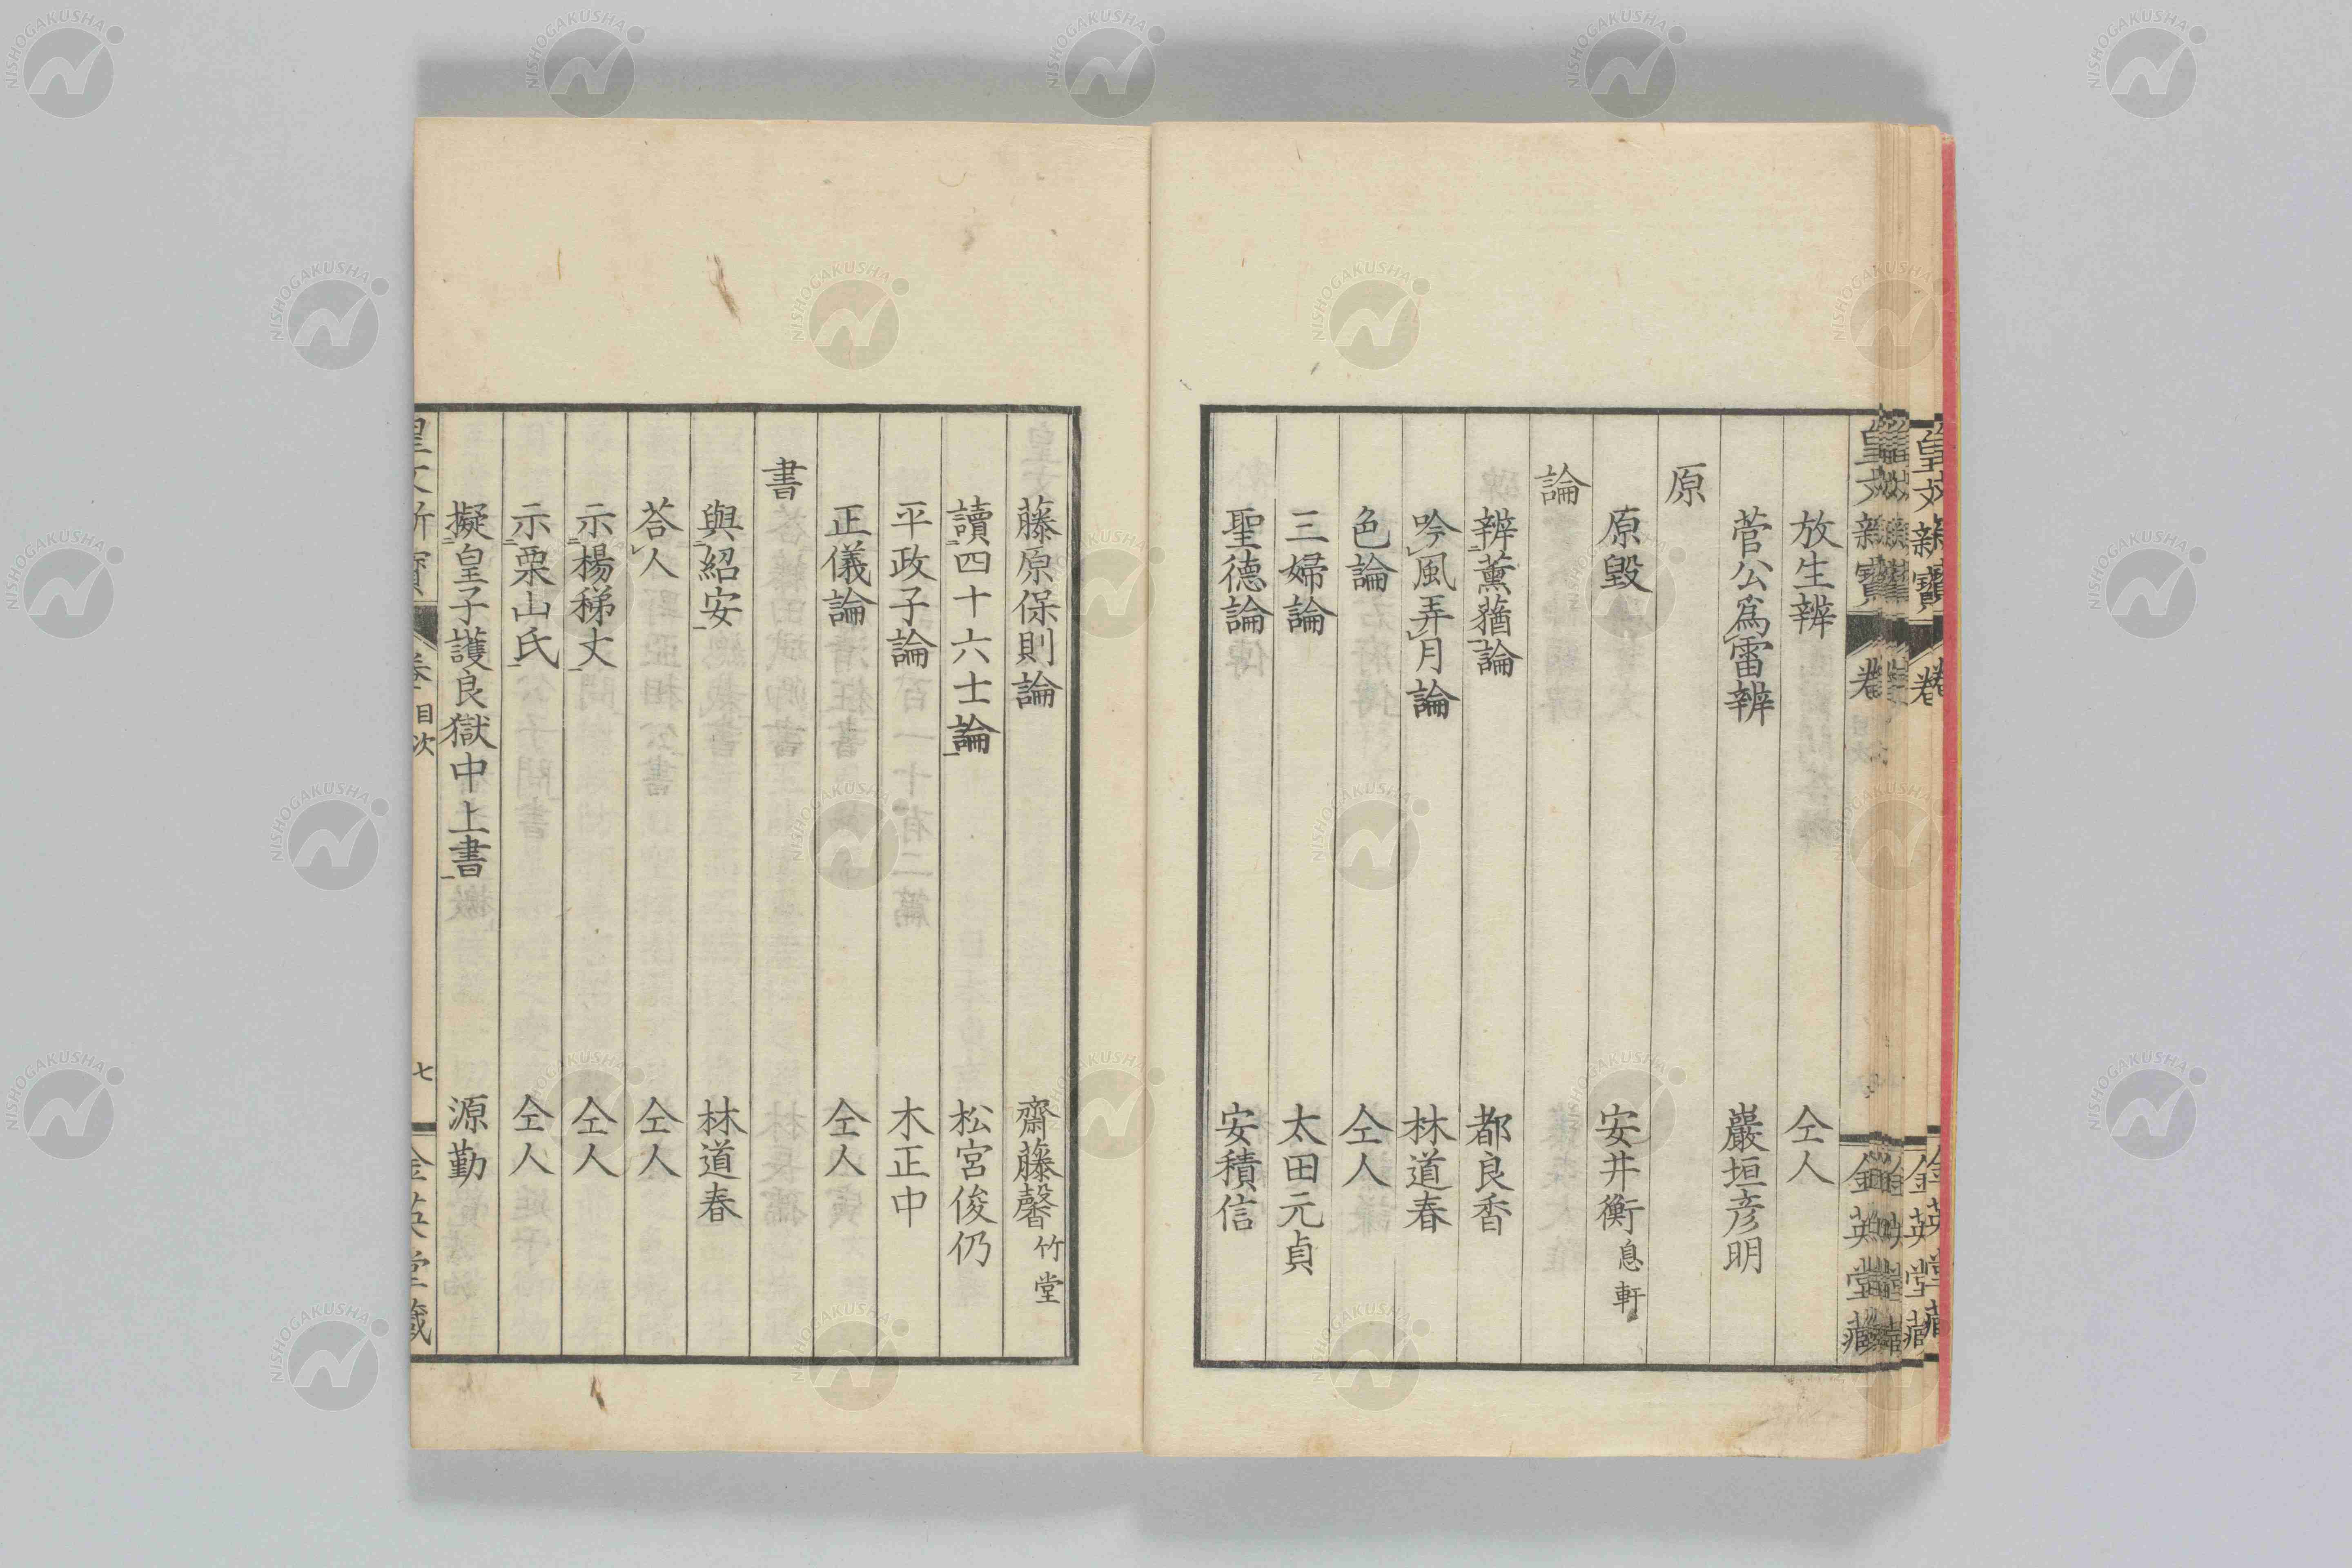 放生辨 仝人
菅公爲雷辨 巖垣彦明
原
原毀 安井衡 息軒
論
辨薰蕕論 都良香
吟風弄月論 林道春
色論 仝人
三婦論 太田元貞
聖德論 安積信
藤原保則論 齋藤馨 竹堂
讀四十六士論 松宮俊仍
平政子論 木正中
正儀論 仝人
書
與紹安 林道春
答人 仝人
示楊稊丈 仝人
示栗山氏 仝人
擬皇子護良獄中上書 源勤
目次 七
皇文新寶 卷 金英堂藏
NISHOGAKUSHA